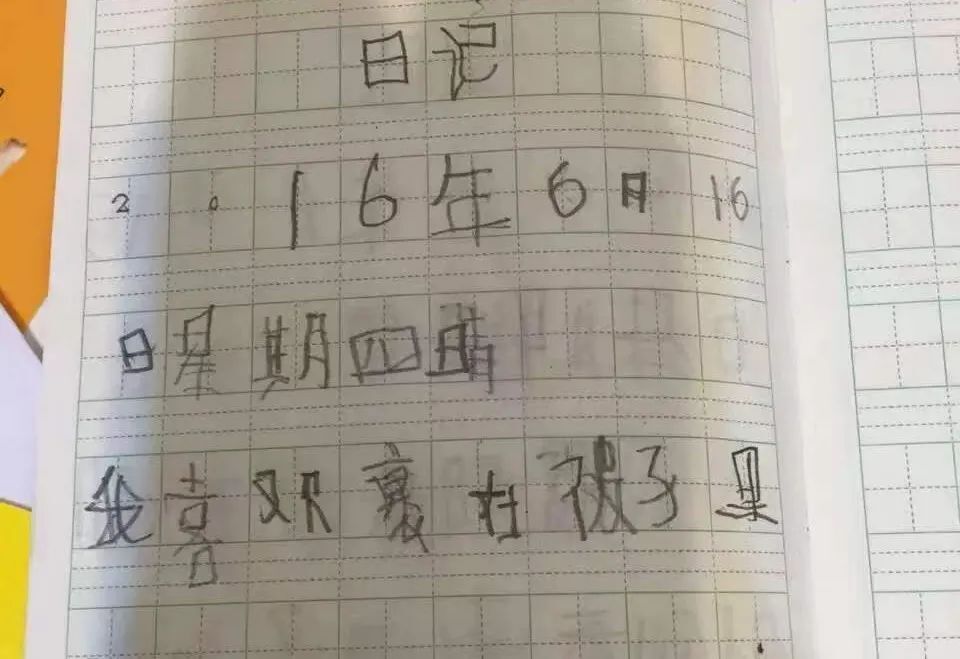 日记
2016年6月16
日星期四晴
我喜欢裹在被子里